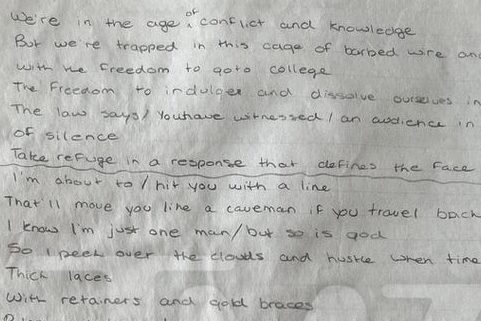 We're in the age of conflict and knowledge
But we're trapped in this cage of barbed wire and
with the freedom to goto college
The freedom to indulge and dissolve ourselves in
The law says/ You have witnessed/ an audience in
of silence
Take refuge in a response that defines the face
I'm about to/ hit you with a line
That'll move you like a caveman if you travel back
I know I'm just one man/ but so is god
So I peek over the clouds and hustle when time
Thick laces
With retainers and gold braces